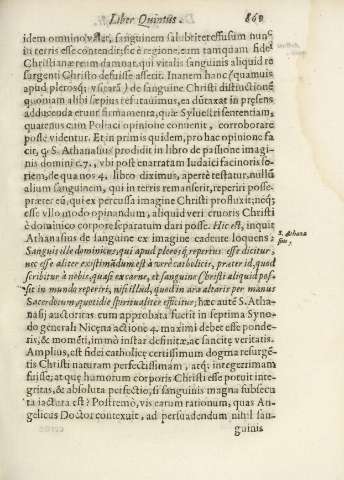 Liber Quintus. 869
idem omnino valet, sanguinem salubriter effusum nunc
in terris esse contendit; sic è regione, eam tamquam fidei
Christianæ reum damnat, qui vitalis sanguinis aliquid re
surgenti Christo defuisse asserit. Inanem hanc (quamuis
apud plerosq; vsurpatā) de sanguine Christi distinctionē
quoniam alibi sæpius refutauimus, ea dūtaxat in præsens
adducenda erunt firmamenta, quæ Syluestri sententiam,
quatenus cum Poliaci opinione conuenit, corroborare
posse videntur. Et in primis quidem, pro hac opinione fa
cit, q; S. Athanasius prodidit in libro de passione imagi
nis domini c. 7., vbi post enarratam Iudaici facinoris se
riem, de qua nos 4. libro diximus, apertè testatur, nullū
alium sanguinem, qui in terris remanserit, reperiri posse,
præter eū, qui ex percussa imagine Christi profluxit; neq;
esse vllo modo opinandum, aliquid veri cruoris Christi
è dominico corpore separatum dari posse. Hic est, inquit
Athanasius de sanguine ex imagine cadente loquens,
S. Athana
sius,
Sanguis ille dominicus, qui apud plerosq; repertus esse dicitur,
nec esse aliter existimādum est à verè catholicis, præter id, quod
scribitur à nobis, quasi ex carne, et sanguine Christi aliquid pos-
sit in mundo reperiri, nisi illud, quod in ara altaris per manus
Sacerdotum, quotidie spiritualiter efficitur; hæc autē S. Atha-
nasij auctoritas cum approbata fuerit in septima Syno-
do generali Nicęna actione 4. maximi debet esse ponde-
ris, & momēti, immò instar definitæ, ac sancitę veritatis.
Amplius, est fidei catholicę certissimum dogma resurgē-
tis Christi naturam perfectissimam, atq; integerrimam
fuisse; at quę humorum corporis Christi esse potuit inte-
gritas, & absoluta perfectio, si sanguinis magna subsecu
ta iactura est? Postremò, vis earum rationum, quas An-
gelicus Doctor contexuit, ad persuadendum nihil san-
guinis